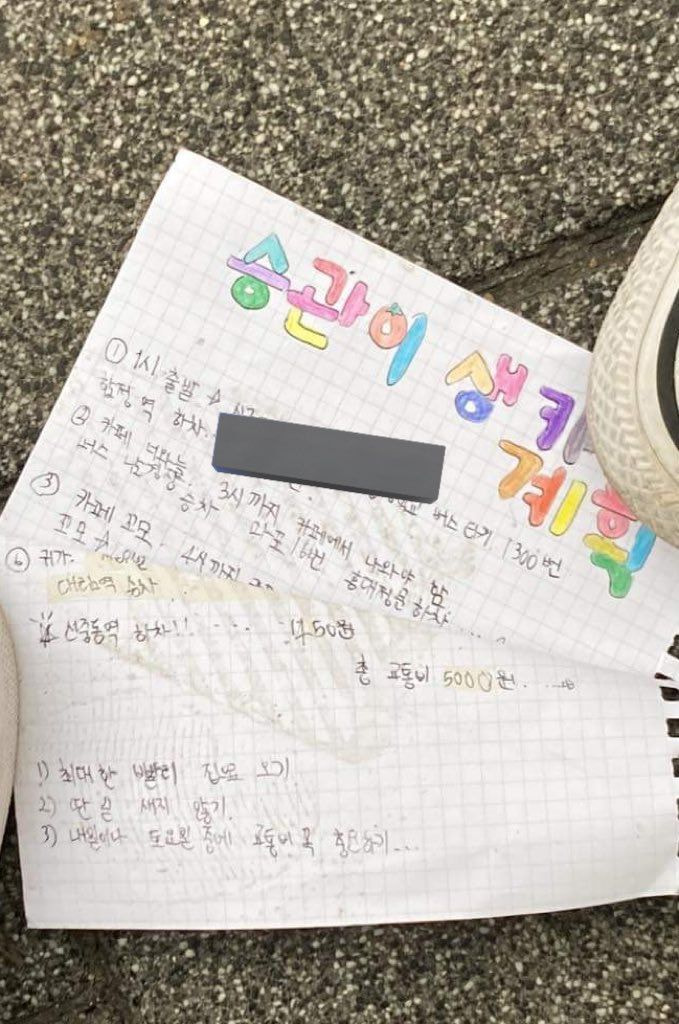 승관이 생카
계획
① 1시 출발 → 
합정역 하차.
② 카페
버스 타기 1300번
버스 승차
3시까지 카페에서 나와야 함
③ 카페 꼬모 마포 16번 홍대정문 하차
꼬모 → 4시까지
⑥ 귀가.
대림역 승차 . .
신중동역 하차!! - - - - 1450원
총 교통비 5000원. . . . .
1) 최대한 빨리 집으로 오기
2) 딴 길 새지 않기.
3) 내일이나 토요일 중에 교통비 꼭 충전하기...